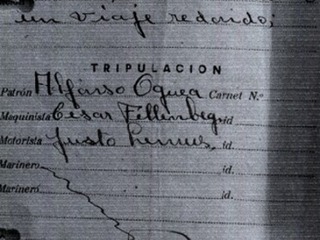 un viaje redondo;
TRIPULACION
Patrón Alfonso Oquea Carnet N.º
Maquinista César Fellenbeg, id.
Motorista Justo Lemus, id.
Marinero id.
Marinero id.